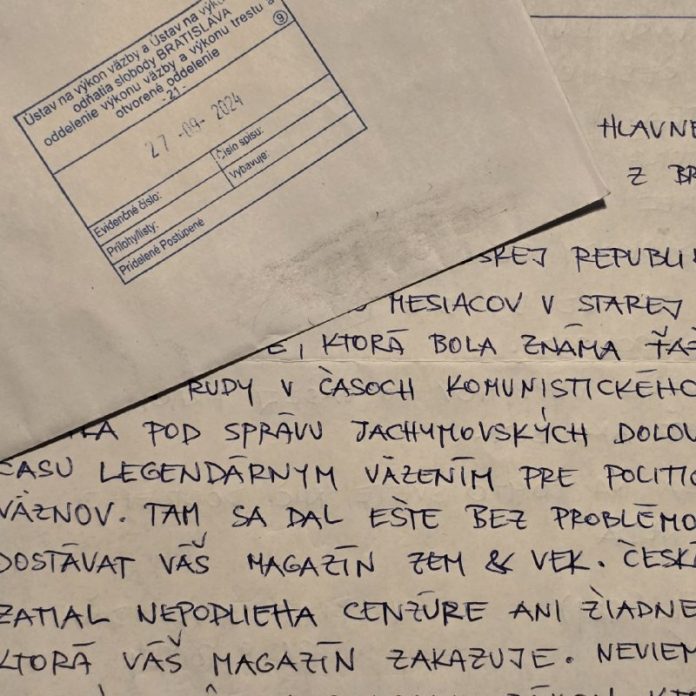 Ústav na výkon väzby a Ústav na výkon
odňatia slobody BRATISLAVA
oddelenie výkonu väzby a výkonu trestu a
otvorené oddelenie
- 21 -
9
27 -09- 2024
Evidenčné číslo:
Číslo spisu:
Prílohy/listy:
Vybavuje:
Pridelené Postúpené
HLAVNE
Z BR
SKEJ REPUBLI
MESIACOV V STAREJ
E, KTORÁ BOLA ZNÁMA ŤAŽ
RUDY V ČASOCH KOMUNISTICKÉHO
LA POD SPRÁVU JACHYMOVSKÝCH DOLOV
ČASU LEGENDÁRNYM VÄZENÍM PRE POLITIC
VÄZNOV. TAM SA DAL EŠTE BEZ PROBLÉMO
DOSTÁVAT VÁŠ MAGAZÍN ZEM & VEK. ČESKÁ
ZATIAL NEPODLIEHA CENZÚRE ANI ŽIADNE
KTORÁ VÁŠ MAGAZÍN ZAKAZUJE. NEVIEM